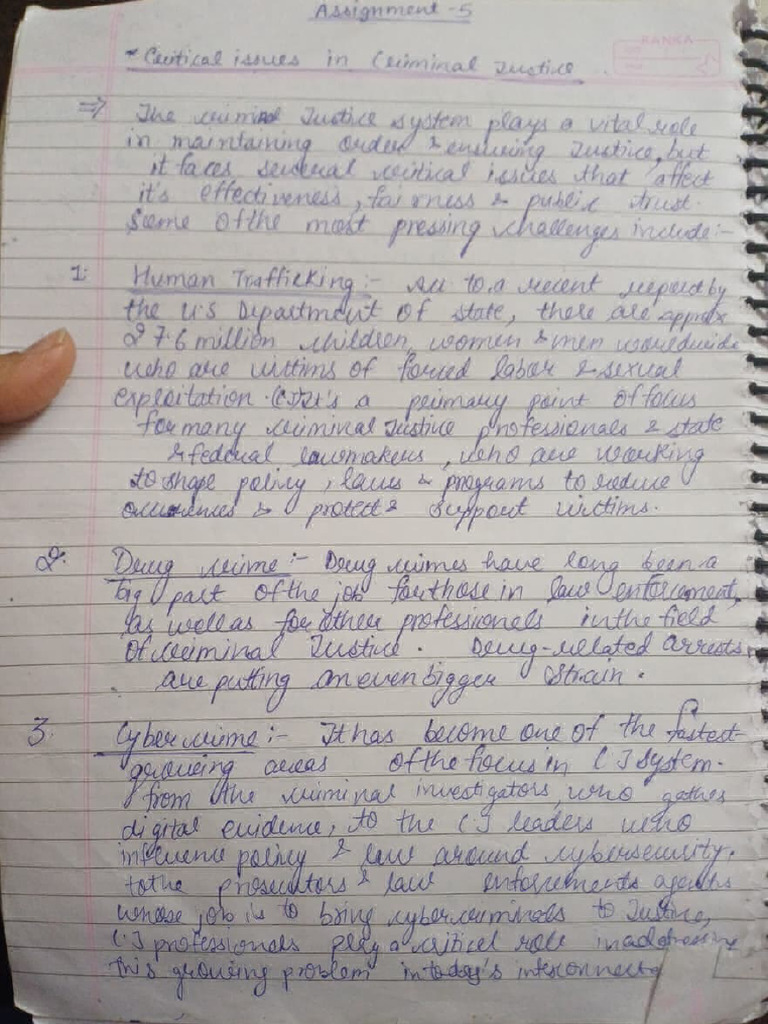 Assignment - 5
* Critical issues in Criminal Justice
⇒ The criminal Justice system plays a vital role
in maintaining order & ensuring Justice, but
it faces several critical issues that affect
it's effectiveness, fairness & public trust.
Some of the most pressing challenges include:-
1. Human Trafficking:- Acc to a recent report by
the U.S Department of state, there are approx
27.6 million children, women & men worldwide
who are victims of forced labor & sexual
exploitation. It's a primary point of focus
for many criminal Justice professionals & state
& federal lawmakers, who are working
to shape policy, laws & programs to reduce
occurrences & protect & support victims.
2. Drug crime:- Drug crimes have long been a
big part of the job for those in law enforcement,
as well as for other professionals in the field
of criminal Justice. Drug-related arrests
are putting an even bigger strain.
3. Cybercrime:- It has become one of the fastest
growing areas of the focus in CJ system.
from the criminal investigators, who gather
digital evidence, to the CJ leaders who
influence policy & law around cybersecurity.
to the prosecutors & law enforcements agents
whose job is to bring cybercriminals to Justice,
CJ professionals play a critical role in addressing
this growing problem in today's